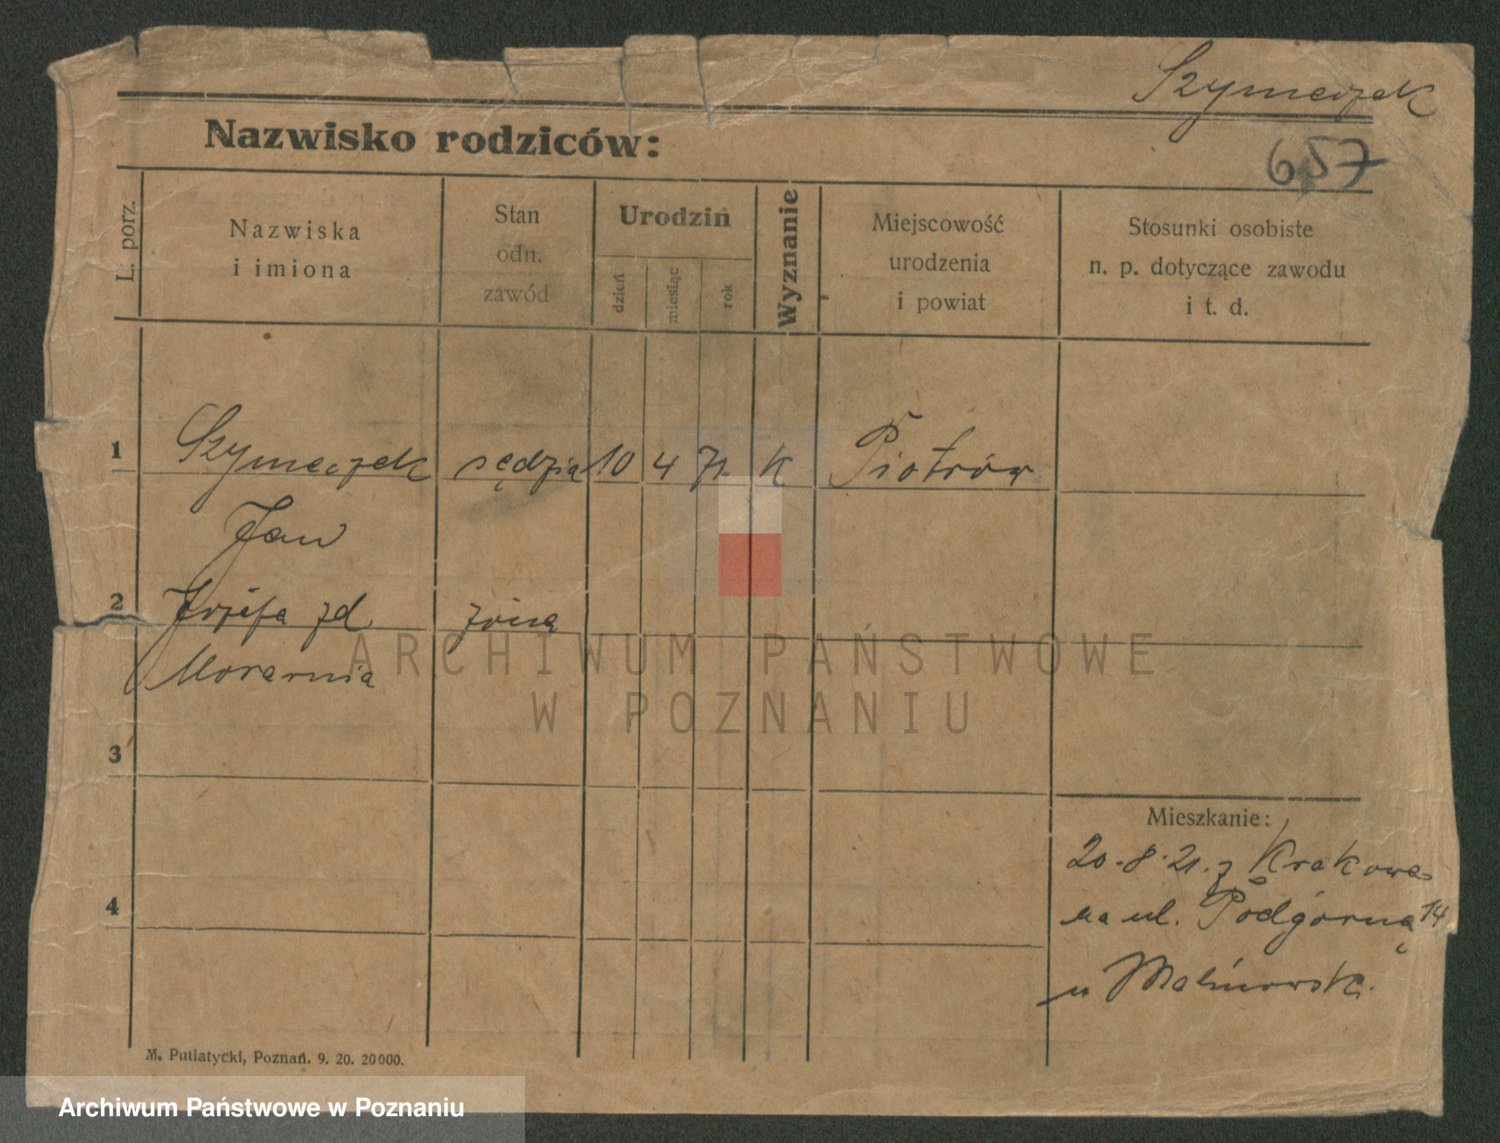 Szymeczek
657
Nazwisko rodziców:
L. porz.
Nazwiska
i imiona
Stan
odn.
zawód
Urodzin
dzień
miesiąc
rok
Wyznanie
Miejscowość
urodzenia
i powiat
Stosunki osobiste
n. p. dotyczące zawodu
i t. d.
1 Szymeczek sędzia 10 4 71. K Piotrów
Jan
2 Józefa zd żona
Morawnia
ARCHIWUM PAŃSTWOWE
W POZNANIU
3
4
Mieszkanie:
20.8.21. z Krakowa
na ul. Podgórną 14
u Malinowski.
M. Putiatycki, Poznań. 9. 20. 20000.
Archiwum Państwowe w Poznaniu